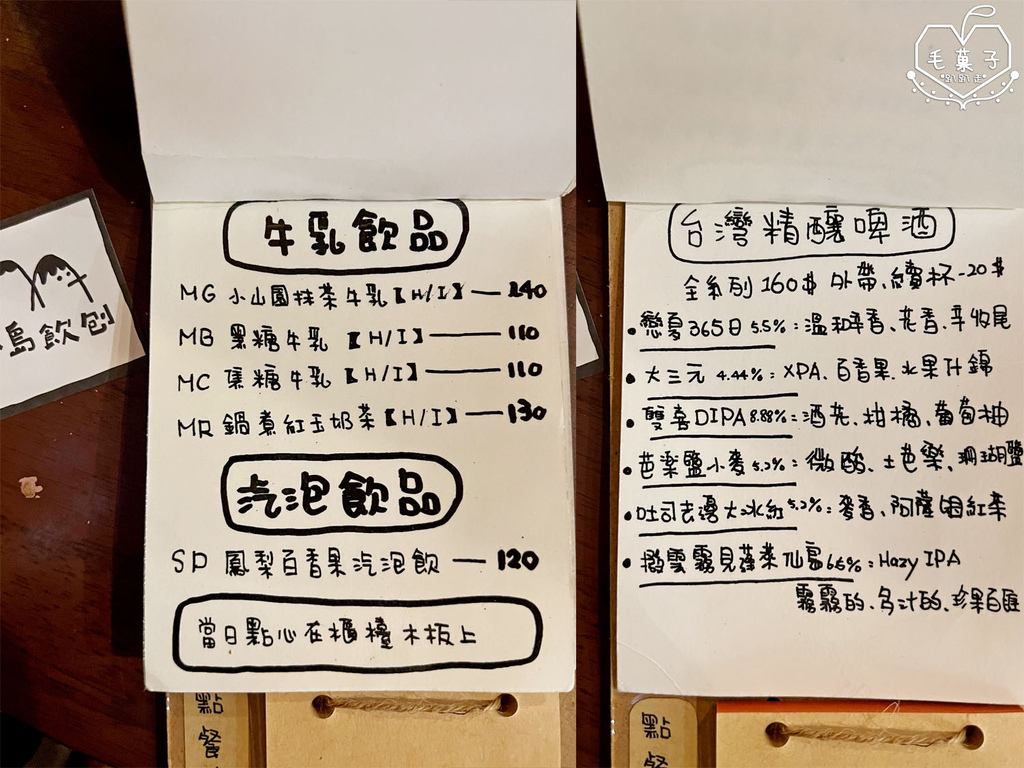 牛乳飲品
MG 小山園抹茶牛乳【H/I】— 240
MB 黑糖牛乳【H/I】— 110
MC 焦糖牛乳【H/I】— 110
MR 鍋煮紅玉奶茶【H/I】— 130
汽泡飲品
SP 鳳梨百香果汽泡飲 — 120
當日點心在櫃檯木板上
島飲刨
點餐
毛菓子
趴趴走
台灣精釀啤酒
全系列160$ 外帶、續杯-20$
•戀夏365日 5.5%:溫和辛香、花香、辛收尾
•大三元 4.44%:XPA、百香果、水果什錦
•雙喜DIPA 8.88%:酒花、柑橘、葡萄柚
•芭樂鹽小麥 5.2%:微酸、土芭樂、珊瑚鹽
•吐司去邊大冰紅 5.2%:麥香、阿薩姆紅茶
•撥雲霧見蓬萊仙島 6.6%:Hazy IPA
霧霧的、多汁的、珍果百匯
點餐